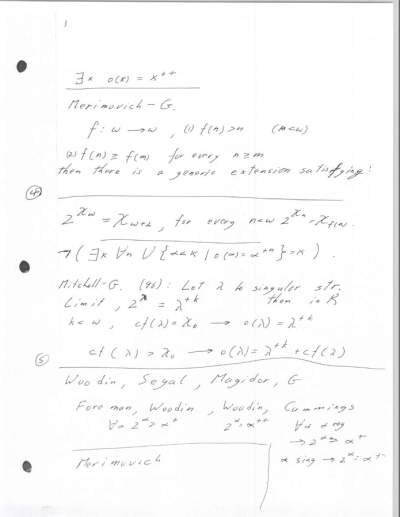 1
∃κ o(κ) = κ⁺⁺
Merimovich - G.
f: ω → ω, (1) f(n) > n (n<ω)
(2) f(n) ≥ f(m) for every n ≥ m
then there is a generic extension satisfying:
④
2^ℵω = ℵω+2, for every n<ω 2^ℵn = ℵf(n).
¬(∃κ ∀n ∪{α<κ | o(α) = α⁺ⁿ} = κ).
Mitchell-G. (96): Let λ be singular str.
limit, 2^λ = λ^+k then in K
k<ω, cf(λ) = ℵ₀ → o(λ) = λ^+k
cf(λ) > ℵ₀ → o(λ) = λ^+k + cf(λ)
⑤
Woodin, Segal, Magidor, G
Foreman, Woodin, Woodin, Cummings
∀α 2^α > α⁺ 2^α = α⁺⁺ ∀α α reg
→ 2^α = α⁺
Merimovich α sing → 2^α = α⁺